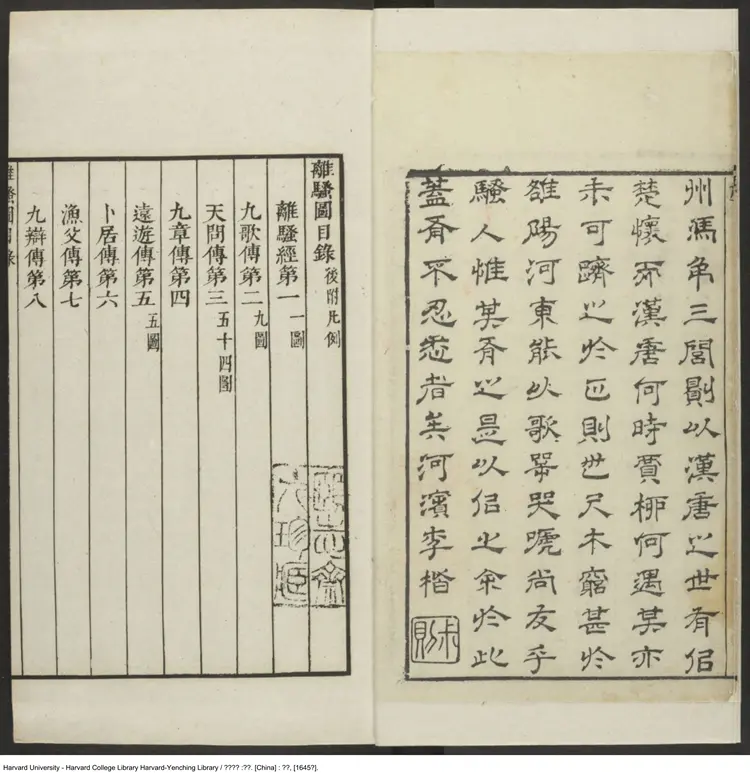 州馮弔三閭以漢唐之世有侣
楚懷而漢唐何時賈桺何遇某亦
未可躋之於正則世尺木窮甚於
雒陽河東能以歌咢哭唬尚友乎
騷人惟某有之是以侣之余於此
蓋有不忍者矣河濱李楷
叔則
離騷圖目錄 後附凡例
離騷經第一 一圖
九歌傳第二 九圖
天問傳第三 五十四圖
九章傳第四
遠遊傳第五 五圖
卜居傳第六
漁父傳第七
九辯傳第八
離騷圖目錄
Harvard University - Harvard College Library Harvard-Yenching Library / ???? :??. [China] : ??, [1645?].